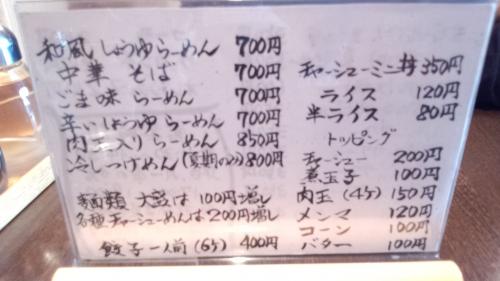 和風しょうゆらーめん 700円
中華そば 700円
ごま味らーめん 700円
辛いしょうゆらーめん 700円
肉玉入りらーめん 850円
冷しつけめん(夏期のみ)800円
麺類 大盛は 100円増し
各種チャーシューめんは200円増し
餃子一人前(6ケ) 400円
チャーシューミニ丼 350円
ライス 120円
半ライス 80円
トッピング
チャーシュー 200円
煮玉子 100円
肉玉(4ケ) 150円
メンマ 120円
コーン 100円
バター 100円